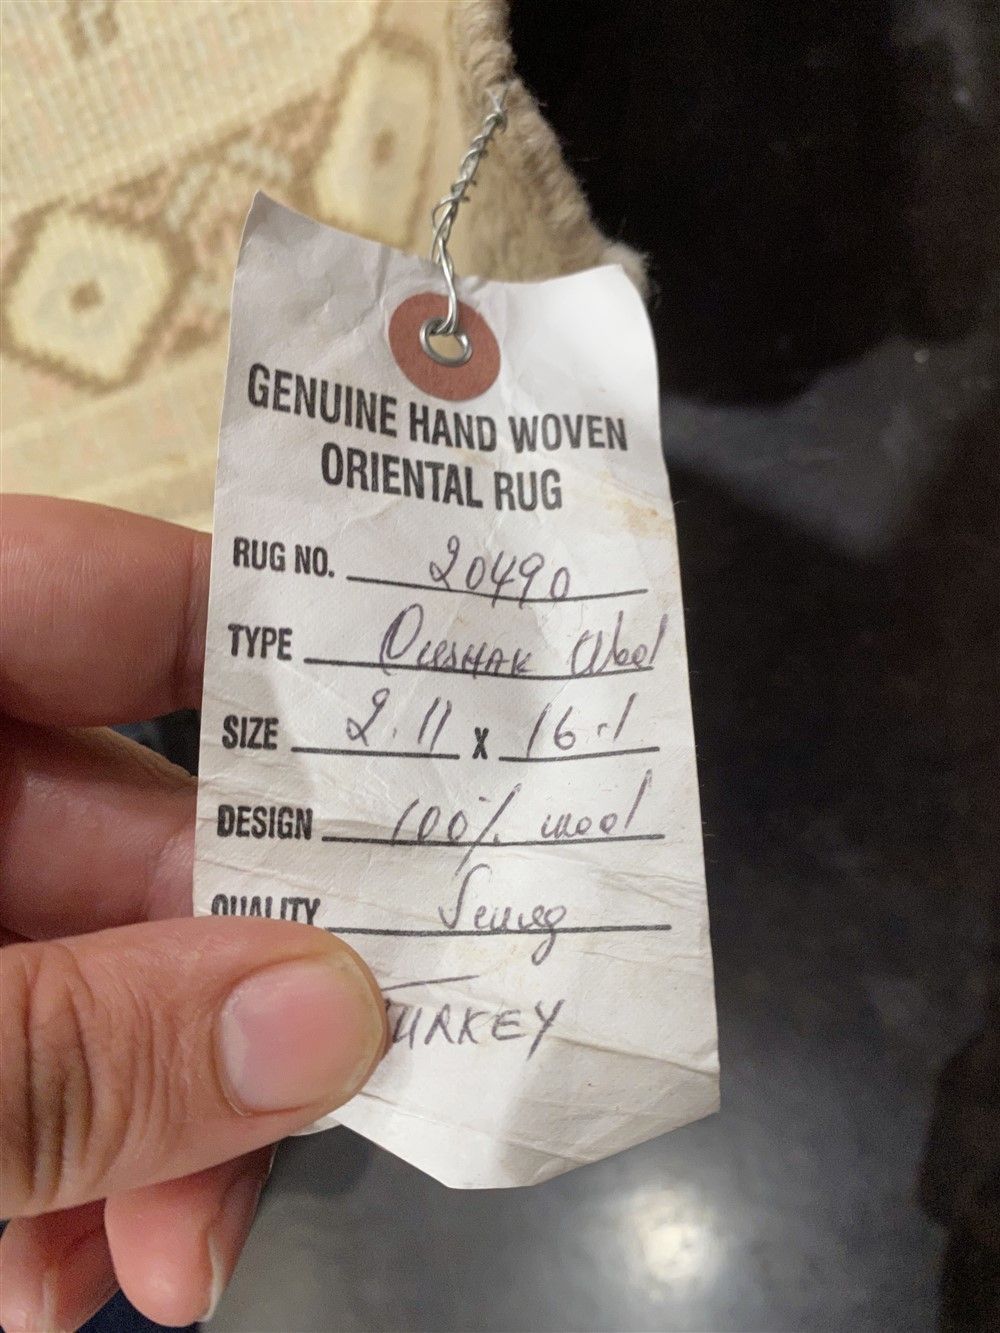 GENUINE HAND WOVEN
ORIENTAL RUG
RUG NO. 20490
TYPE Oushak Wool
SIZE 2.11 x 16.1
DESIGN 100% wool
QUALITY
TURKEY